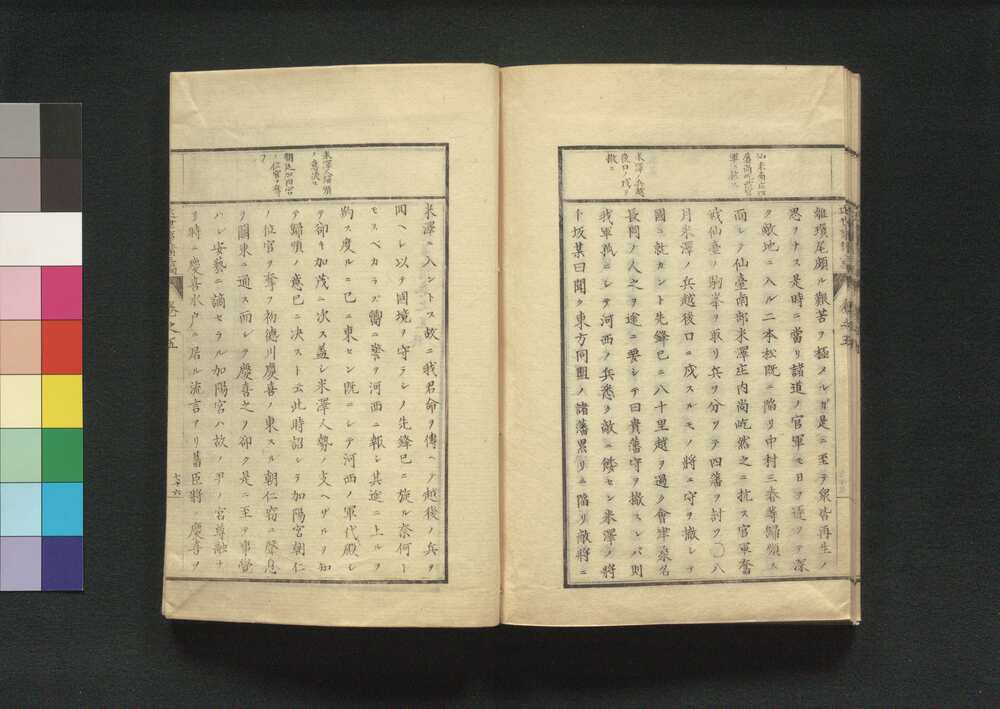 仙米南庄四
藩尚官
軍ニ抗ス
米澤ノ兵越
後口ノ戍ヲ
撤ス
雖瑣尾頗ル艱苦ヲ極メルガ是ニ至テ衆皆再生ノ
思ヲナス是時ニ當リ諸道ノ官軍モ日ヲ逐フテ深
ク敵地ニ入ル二本松既ニ陷リ中村三春等歸順ス
而レ𪜈仙臺南部米澤庄内尚屹然之ニ抗ス官軍奮
戎仙臺ノ駒峯ヲ取リ兵ヲ分ツテ四藩ヲ討ツ〇八
月米澤ノ兵越後口ニ戍スルモノ將ニ守ヲ撤シテ
國ニ就カント先鋒已ニ八十里越ヲ過ク會津桑名
長岡ノ人之ヲ途ニ要シテ曰貴藩守ヲ撤スレバ則
我軍孤ニシテ河西ノ兵悉ク敵ニ餧セン米澤ノ將
下坂某曰聞ク東方同盟ノ諸藩累リニ陷リ敵將ニ
米澤人歸順
ノ意決ス
朝廷加陽宮
ノ位官ヲ奪
フ
米澤ニ入ントス故ニ我君命ヲ傳ヘテ越後ノ兵ヲ
回ヘシ以テ國境ヲ守ラシム先鋒已ニ旋ル奈何ト
モスベカラズ爾ニ警ヲ河西ニ報シ其途ニ上ルヲ
約ス度ルニ已ニ東セン既ニシテ河西ノ軍代殿シ
ヲ卻キ加茂ニ次ス蓋シ米澤人勢ノ支ヘザルヲ知
テ歸順ノ意已ニ决スト云此時詔シテ加陽宮朝仁
ノ位官ヲ奪フ初德川慶喜ノ東スル朝仁窃ニ聲息
ヲ關東ニ通ス而レ𪜈慶喜之ヲ卻ク是ニ至テ事覺
ハレ安藝ニ謫セラル加陽宮ハ故ノ尹ノ宮尊融ナ
リ時ニ慶喜水戸ニ居ル流言アリ舊臣將ニ慶喜ヲ
卷之五
六十六